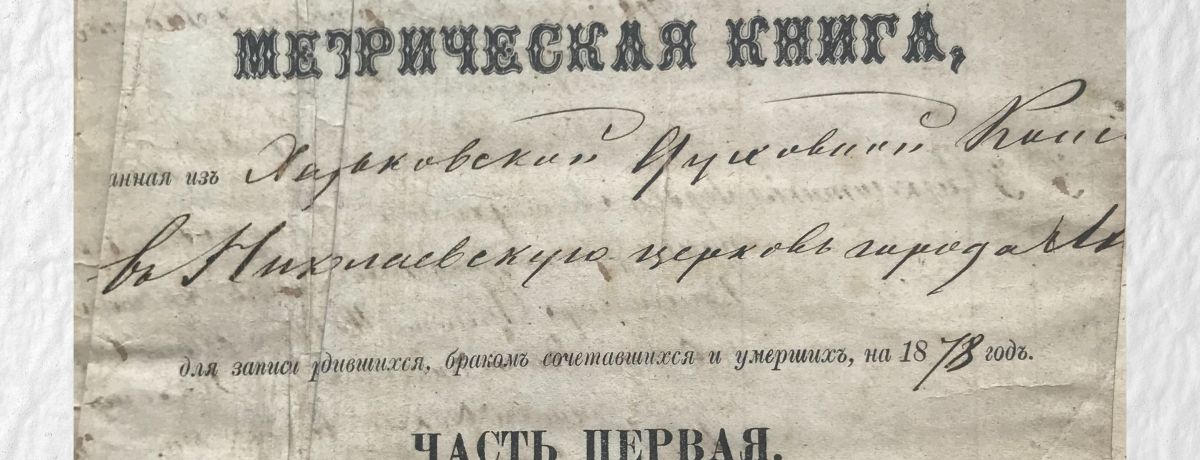 МЕТРИЧЕСКАЯ КНИГА,
анная изъ Харьковской Духовной Конс
въ Николаевскую церковь города
для записи родившихся, бракомъ сочетавшихся и умершихъ, на 1878 годъ.
ЧАСТЬ ПЕРВАЯ.